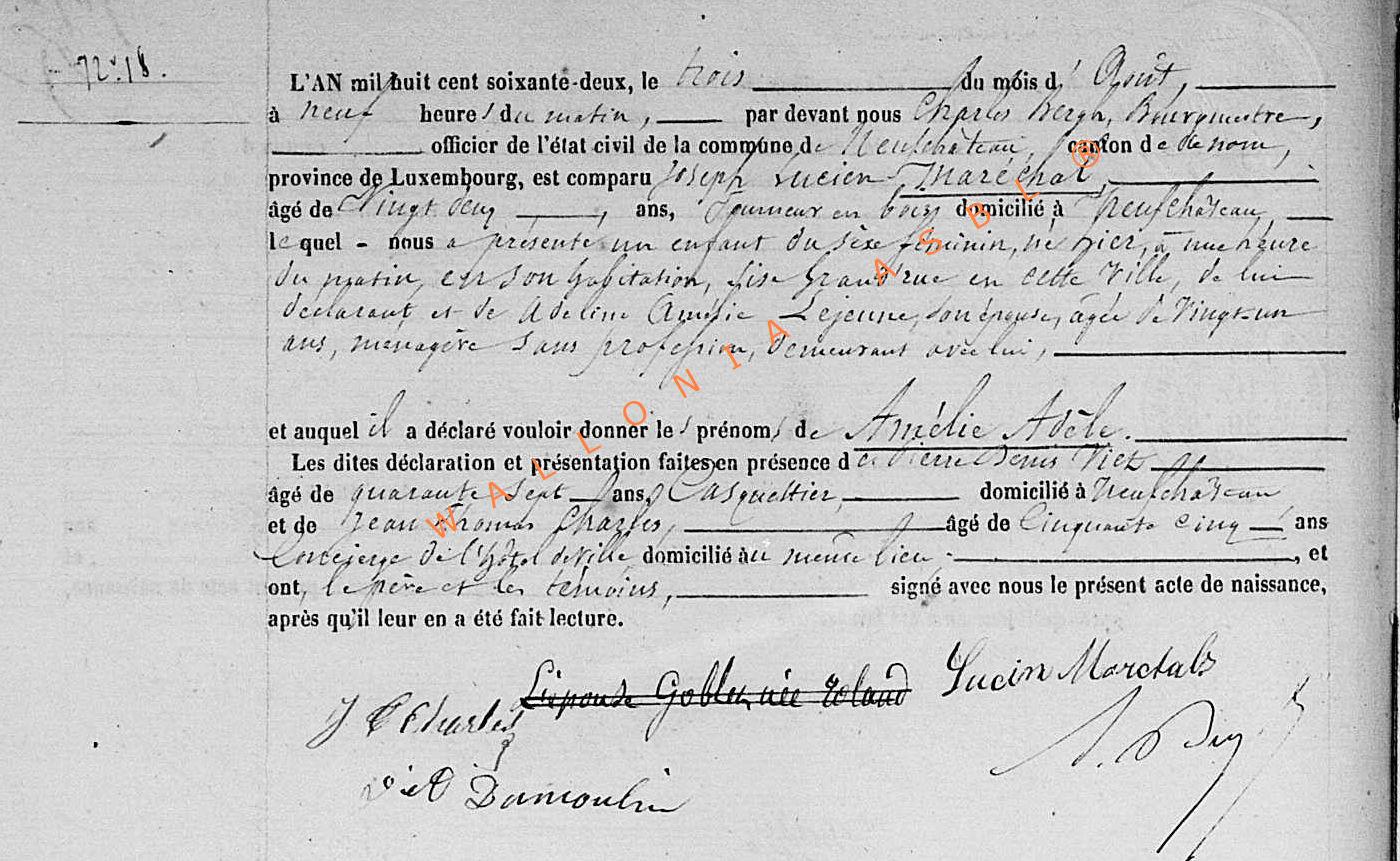 72. 18.
L'AN mil huit cent soixante-deux, le trois du mois d' Août,
à neuf heures du matin, par devant nous Charles Bergh, Bourgmestre,
officier de l'état civil de la commune de Neufchâteau, canton de ce nom,
province de Luxembourg, est comparu Joseph Lucien Maréchal,
âgé de Vingt deux, ans, Tourneur en bois domicilié à Neufchâteau,
lequel - nous a présenté un enfant du sèxe féminin, né hier, à une heure
du matin, en son habitation, sise Grand'rue en cette Ville, de lui
déclarant et de Adeline Amélie Lejeune, son épouse, agée de Vingt-un
ans, ménagère sans profession, demeurant avec lui,
et auquel il a déclaré vouloir donner les prénoms de Amélie Adèle.
Les dites déclaration et présentation faites en présence de Pierre Denis
âgé de quarante sept ans, Casquettier, domicilié à Neufchâteau
et de Jean Thomas Charles, âgé de Cinquante cinq ans
Concierge de l'hôtel de Ville domicilié au même lieu, et
ont, le père et les témoins, signé avec nous le présent acte de naissance,
après qu'il leur en a été fait lecture.
L'épouse Goblet née Roland
Lucin Marctals
J T Charles
Dumoulin
WALLONIA ASBL ®